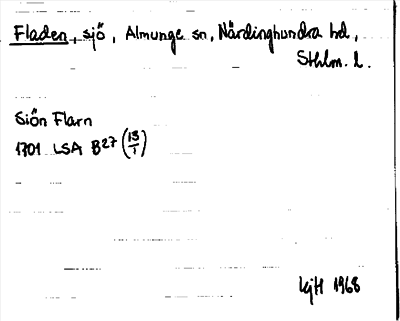 Fladen, sjö, Almunge sn, Närdinghundra hd,
Sthlm. l.
Siön Flarn
1701 LSA B27 (13/1)
KjH 1968